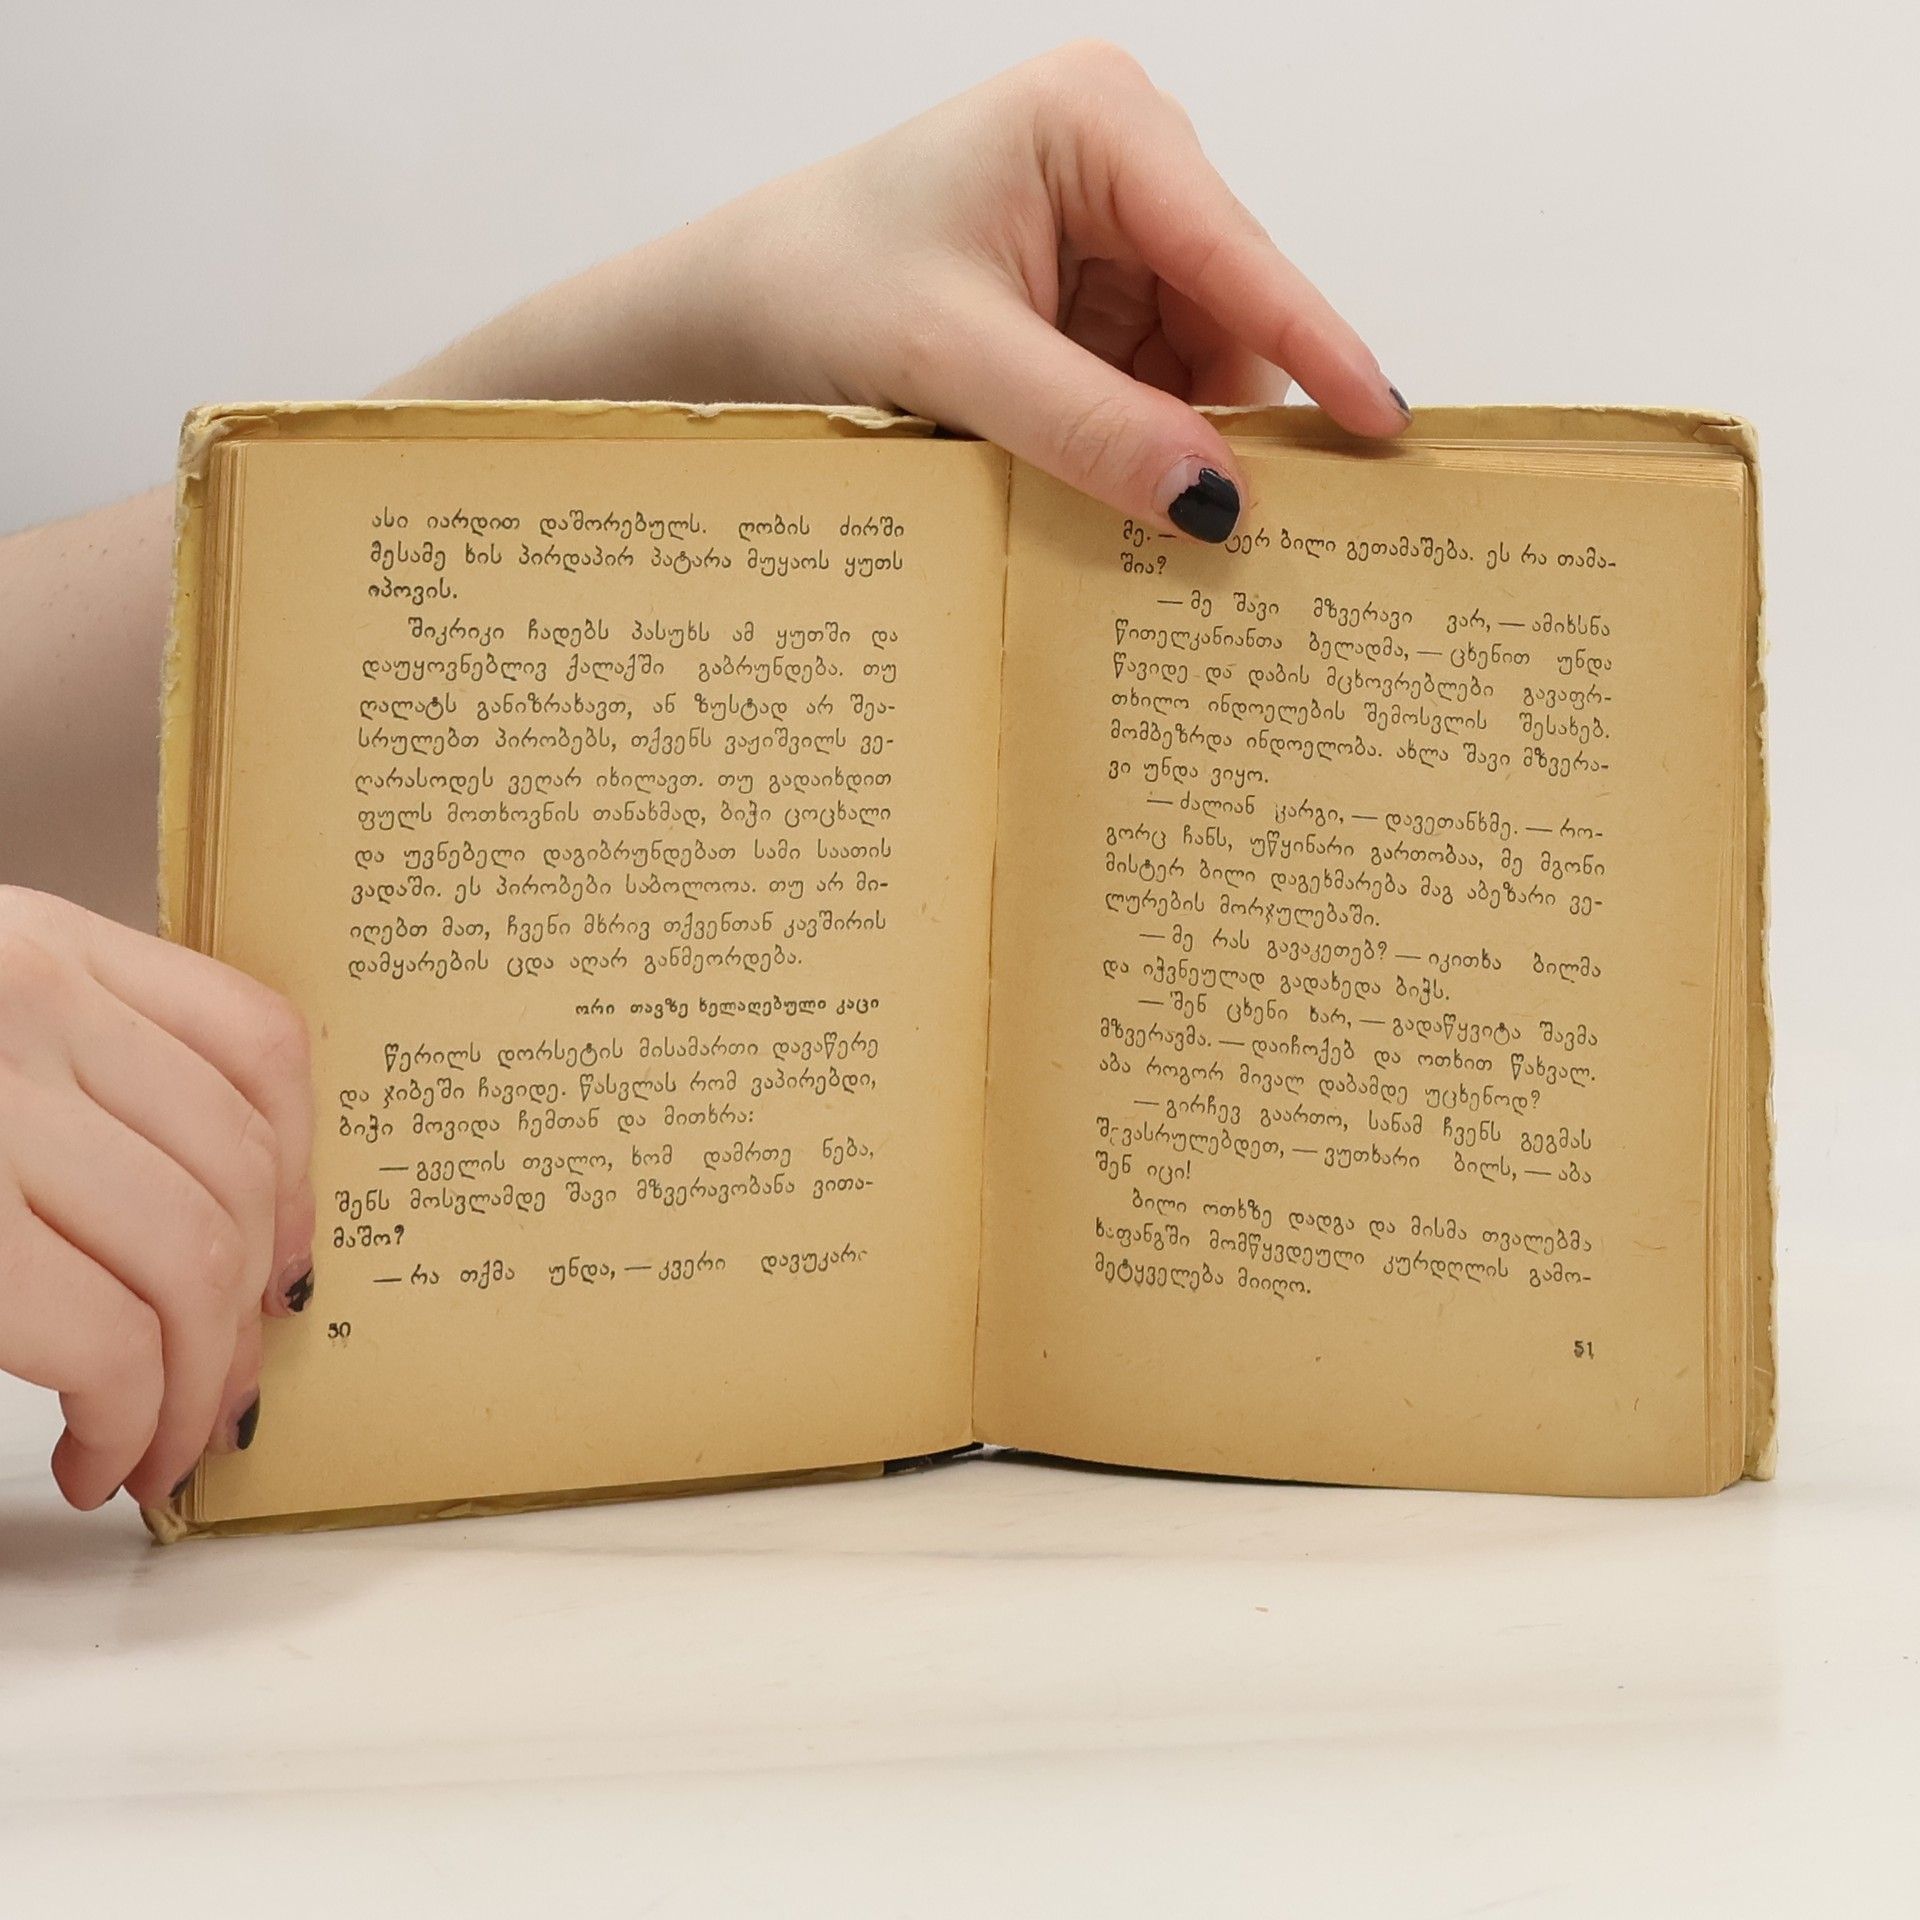 ასი იარდით დაშორებულს. ღობის ძირში
მესამე ხის პირდაპირ პატარა მუყაოს ყუთს
იპოვის.
შიკრიკი ჩადებს პასუხს ამ ყუთში და
დაუყოვნებლივ ქალაქში გაბრუნდება. თუ
ღალატს განიზრახავთ, ან ზუსტად არ შეა-
სრულებთ პირობებს, თქვენს ვაჟიშვილს ვე-
ღარასოდეს ვეღარ იხილავთ. თუ გადაიხდით
ფულს მოთხოვნის თანახმად, ბიჭი ცოცხალი
და უვნებელი დაგიბრუნდებათ სამი საათის
ვადაში. ეს პირობები საბოლოოა. თუ არ მი-
იღებთ მათ, ჩვენი მხრივ თქვენთან კავშირის
დამყარების ცდა აღარ განმეორდება.
ორი თავზე ხელაღებული კაცი
წერილს დორსეტის მისამართი დავაწერე
და ჯიბეში ჩავიდე. წასვლას რომ ვაპირებდი,
ბიჭი მოვიდა ჩემთან და მითხრა:
— გველის თვალო, ხომ დამრთე ნება,
შენს მოსვლამდე შავი მზვერავობანა ვითა-
მაშო?
— რა თქმა უნდა, — კვერი დავუკარი
50
მე. — ბილი გეთამაშება. ეს რა თამა-
შია?
— მე შავი მზვერავი ვარ, — ამიხსნა
წითელკანიანთა ბელადმა, — ცხენით უნდა
წავიდე და დაბის მცხოვრებლები გავაფრ-
თხილო ინდოელების შემოსვლის შესახებ.
მომბეზრდა ინდოელობა. ახლა შავი მზვერა-
ვი უნდა ვიყო.
— ძალიან კარგი, — დავეთანხმე. — რო-
გორც ჩანს, უწყინარი გართობაა, მე მგონი
მისტერ ბილი დაგეხმარება მაგ აბეზარი ვე-
ლურების მორჯულებაში.
— მე რას გავაკეთებ? — იკითხა ბილმა
და იჭვნეულად გადახედა ბიჭს.
— შენ ცხენი ხარ, — გადაწყვიტა შავმა
მზვერავმა. — დაიჩოქებ და ოთხით წახვალ.
აბა როგორ მივალ დაბამდე უცხენოდ?
— გირჩევ გაართო, სანამ ჩვენს გეგმას
შევასრულებდეთ, — ვუთხარი ბილს, — აბა
შენ იცი!
ბილი ოთხზე დადგა და მისმა თვალებმა
ხაფანგში მომწყვდეული კურდღლის გამო-
მეტყველება მიიღო.
51